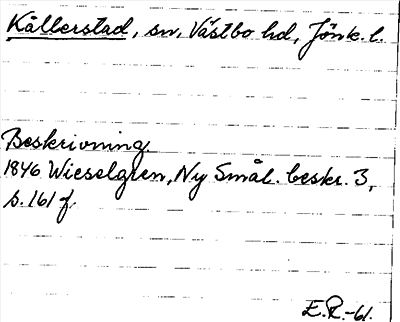 Kållerstad, sn, Västbo hd, Jönk. l.
Beskrivning
1846 Wieselgren, Ny Smål. beskr. 3,
s. 161 f.
E.R.-61.